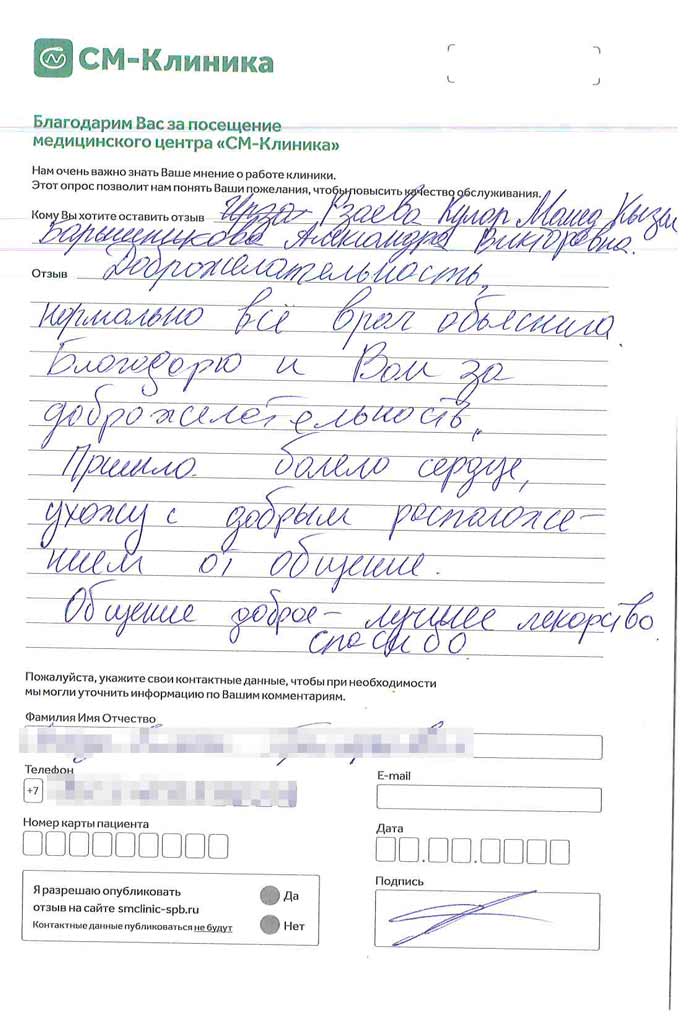 СМ-Клиника
Благодарим Вас за посещение
медицинского центра «СМ-Клиника»
Нам очень важно знать Ваше мнение о работе клиники.
Этот опрос позволит нам понять Ваши пожелания, чтобы повысить качество обслуживания.
Кому Вы хотите оставить отзыв Рзаева Кулар Машед Кызы
Барышникова Александра Викторовна.
Отзыв Доброжелательность,
нормально всё врач объяснила.
Благодарю и Вам за
доброжелательность,,
Пришла болело сердце,
ухожу с добрым расположе-
нием от общение.
Общение доброе – лучшее лекарство
спасибо
Пожалуйста, укажите свои контактные данные, чтобы при необходимости
мы могли уточнить информацию по Вашим комментариям.
Фамилия Имя Отчество
Телефон
+7
E-mail
Номер карты пациента
Дата
Я разрешаю опубликовать
отзыв на сайте smclinic-spb.ru
Контактные данные публиковаться не будут
Да
Нет
Подпись